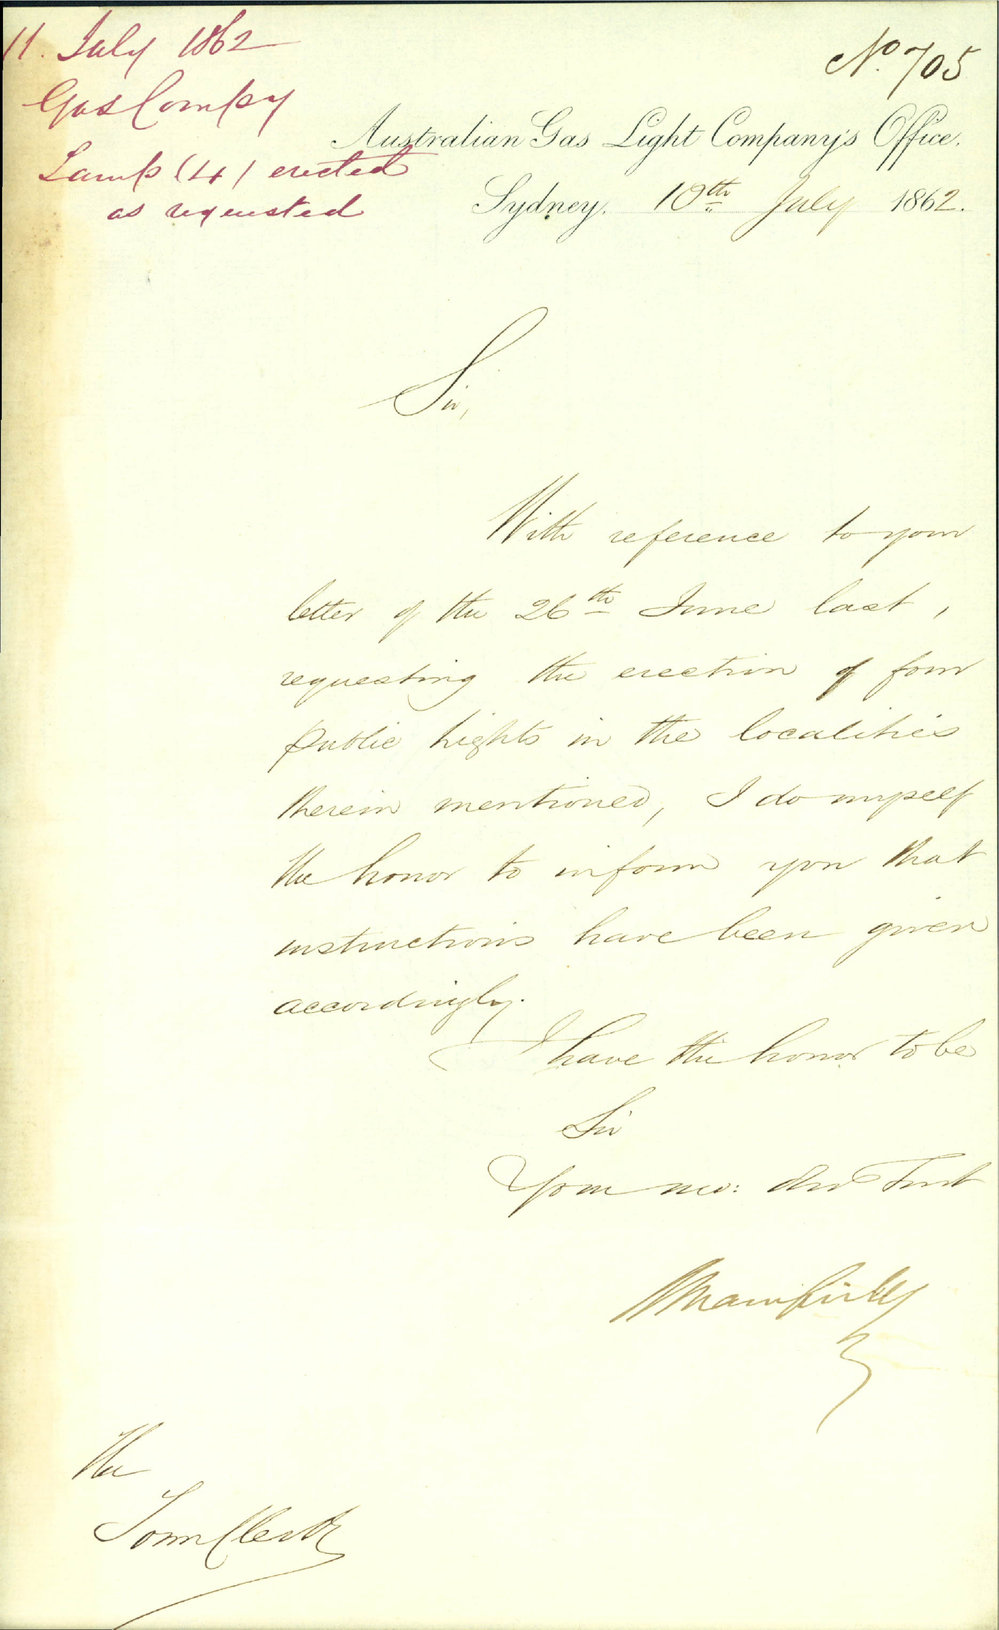 11. July 1862
Gas Compy
Lamp (4) erected
as requested
No. 705
Australian Gas Light Company's Office.
Sydney, 10th July 1862.
Sir,
With reference to your
letter of the 26th June last,
requesting the erection of four
public lights in the localities
therein mentioned, I do myself
the honor to inform you that
instructions have been given
accordingly.
I have the honor to be
Sir
Your mo: Obt Servt
The
Town Clerk